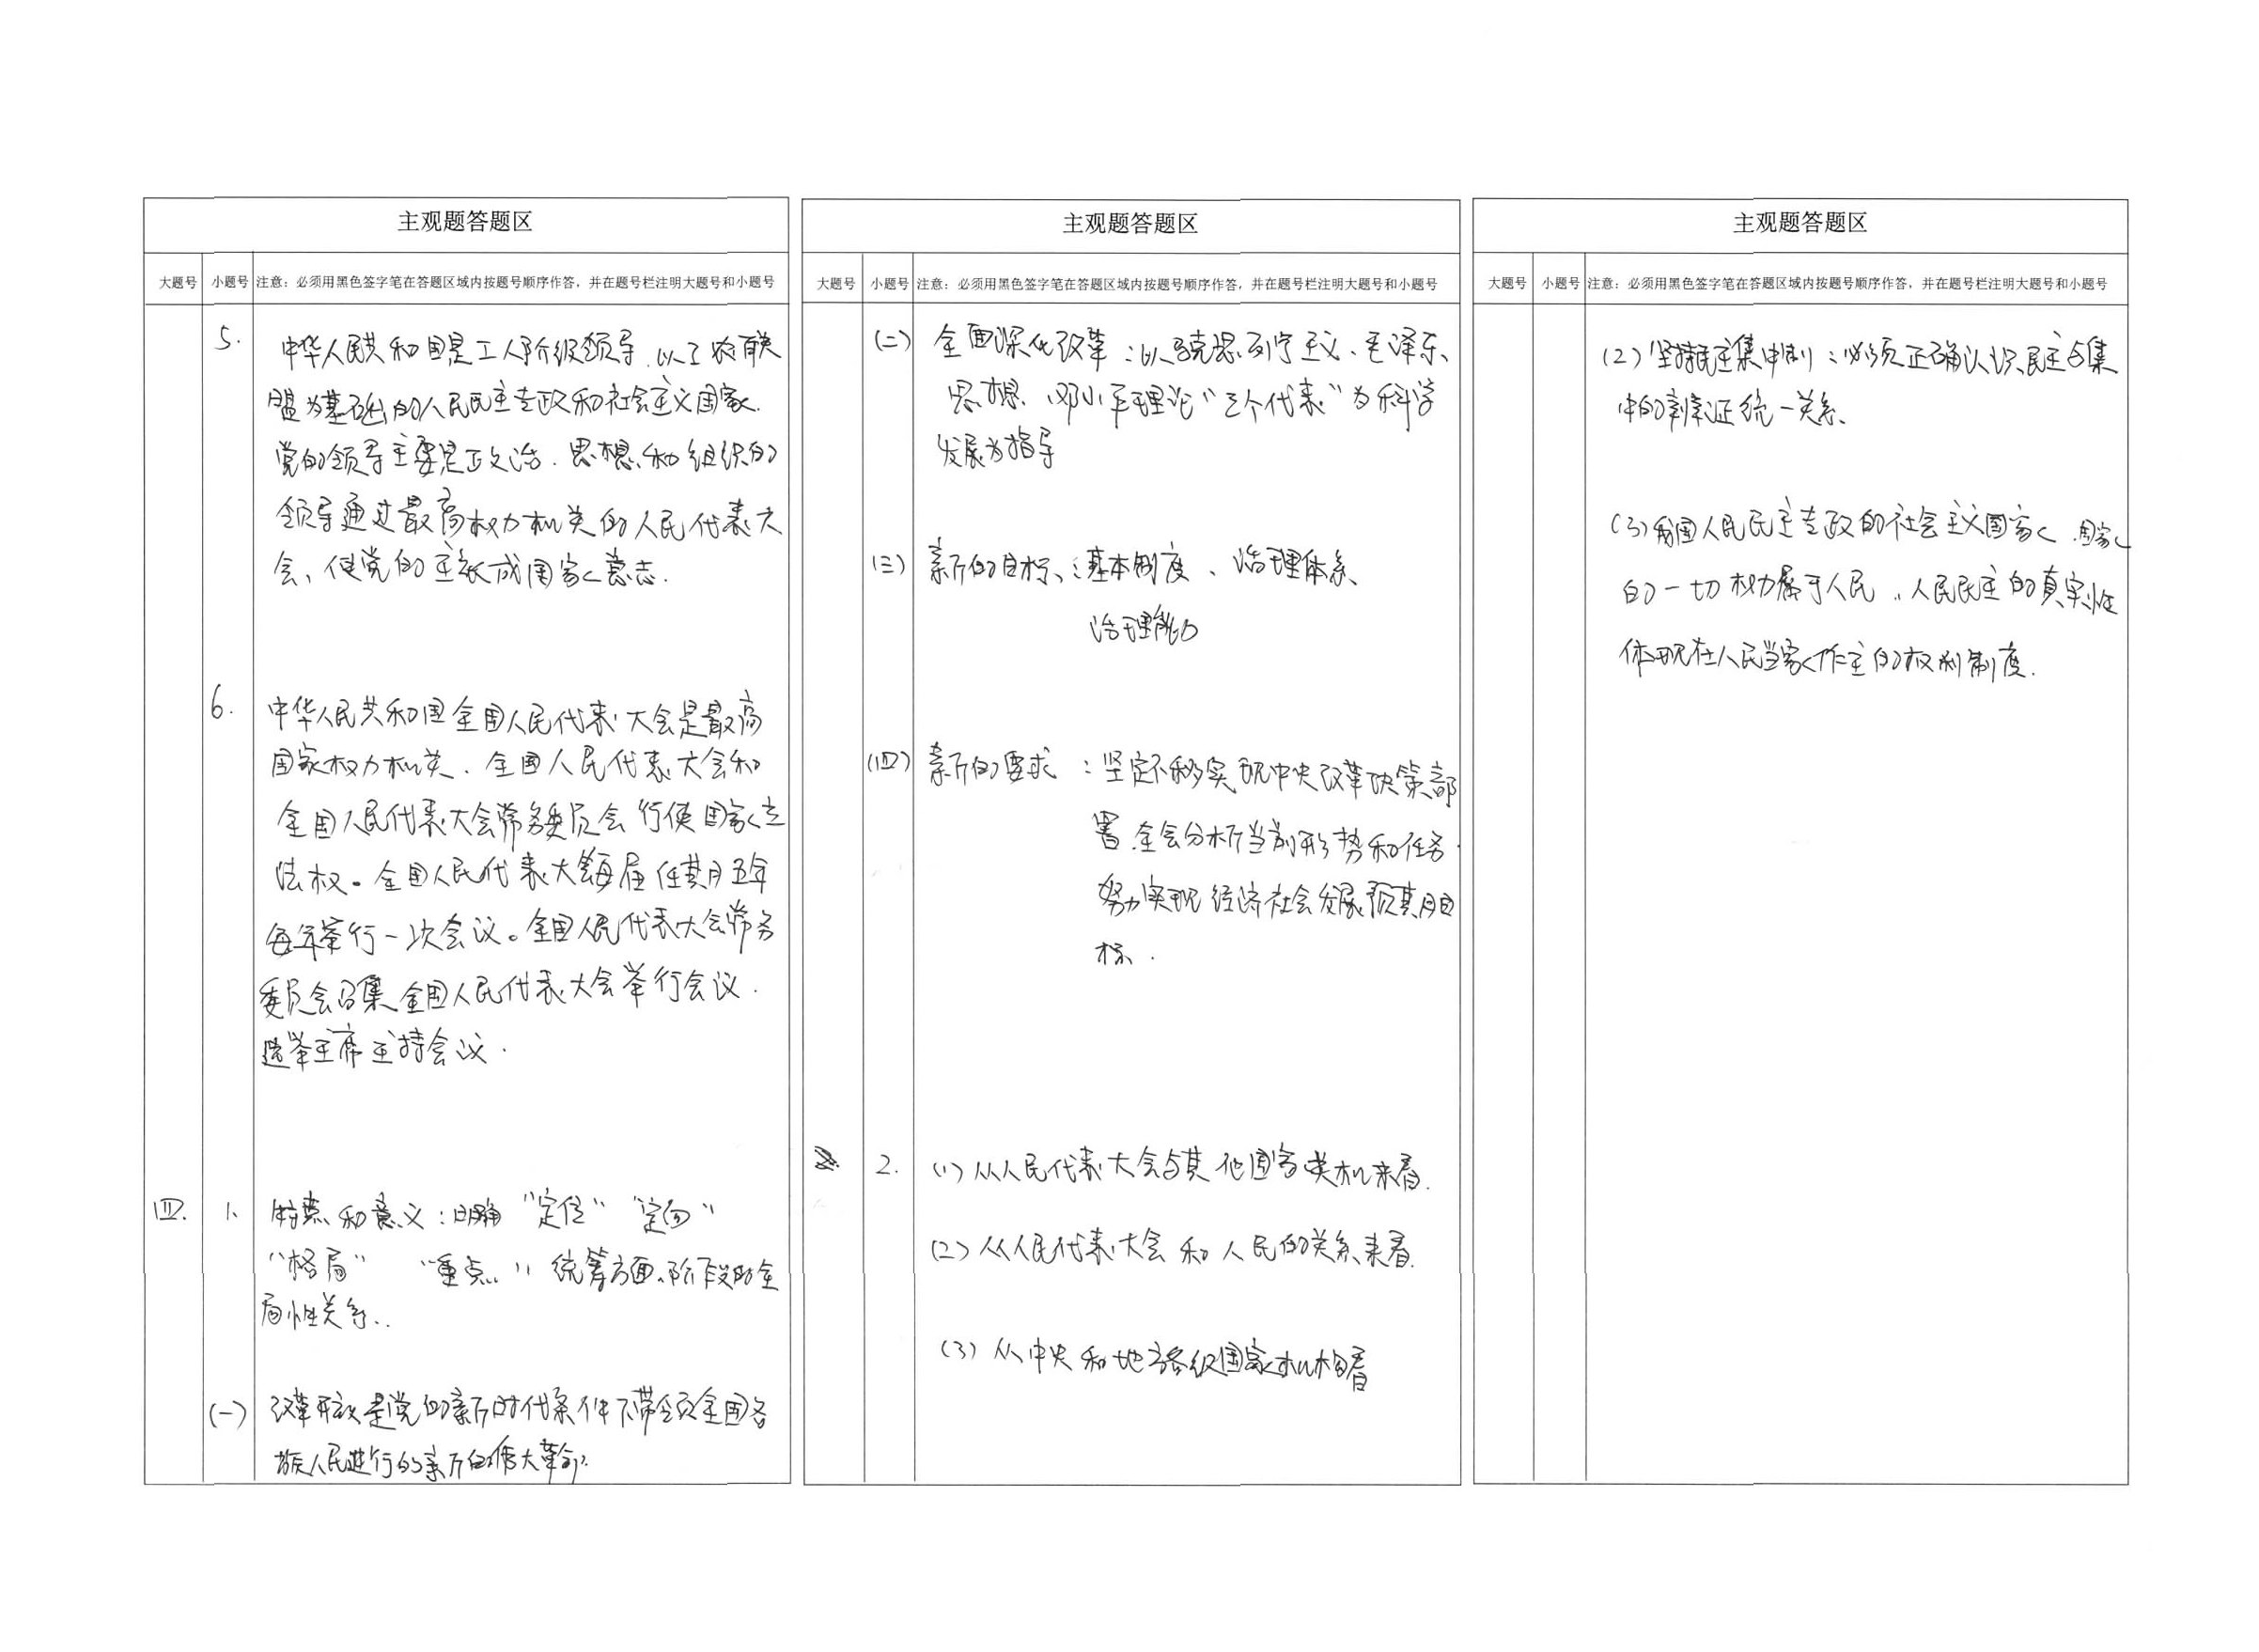 主观题答题区
大题号 小题号 注意：必须用黑色签字笔在答题区域内按题号顺序作答，并在题号栏注明大题号和小题号
5. 中华人民共和国是工人阶级领导.以工农联
盟为基础的人民民主专政和社会主义国家.
党的领导主要是政治.思想.和组织的
领导通过最高权力机关的人民代表大
会、使党的主张成国家意志.
6. 中华人民共和国全国人民代表大会是最高
国家权力机关.全国人民代表大会和
全国人民代表大会常务委员会行使国家立
法权。全国人民代表大会每届任期五年
每年举行一次会议。全国人民代表大会常务
委员会召集全国人民代表大会举行会议.
选举主席主持会议.
四. 1. 特点和意义:明确“定位”“定向”
“格局” “重点”统筹方面、阶段的全
局性关系..
(一) 改革开放是党的新的时代条件下带领全国各
族人民进行的新的伟大革命.
主观题答题区
大题号 小题号 注意：必须用黑色签字笔在答题区域内按题号顺序作答，并在题号栏注明大题号和小题号
(二) 全面深化改革:以马克思列宁主义、毛泽东、
思想、邓小平理论“三个代表”为科学
发展为指导
(三) 新的目标:基本制度、治理体系、
治理能力
(四) 新的要求:坚定不移实现中央改革决策部
署.全会分析当前形势和任务.
努力实现经济社会发展预期目
标.
2. (1)从人民代表大会与其他国家关机来看.
(2)从人民代表大会和人民的关系来看.
(3)从中央和地方各级国家机构看
主观题答题区
大题号 小题号 注意：必须用黑色签字笔在答题区域内按题号顺序作答，并在题号栏注明大题号和小题号
(2)坚持民主集中制:必须正确认识民主与集
中的辩证统一关系.
(3)我国人民民主专政的社会主义国家.国家
的一切权力属于人民.人民民主的真实性
体现在人民当家作主的权利制度.